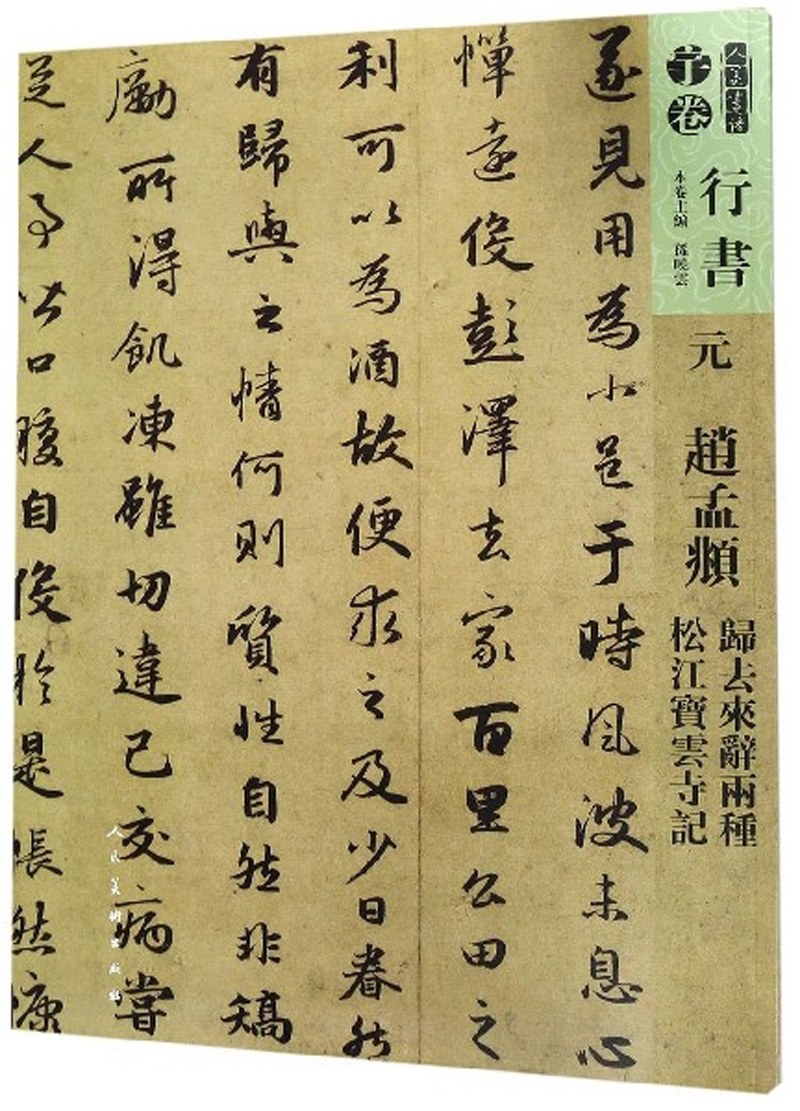 人美書譜
子卷
行書
本卷主編 孫曉雲
元 趙孟頫
歸去來辭兩種
松江寶雲寺記
遂見用為小邑于時風波未息心
憚遠役彭澤去家百里公田之
利可以為酒故便求之及少日眷然
有歸與之情何則質性自然非矯
勵所得飢凍雖切違己交病嘗
從人事皆口腹自役於是悵然慷
人民美術出版社